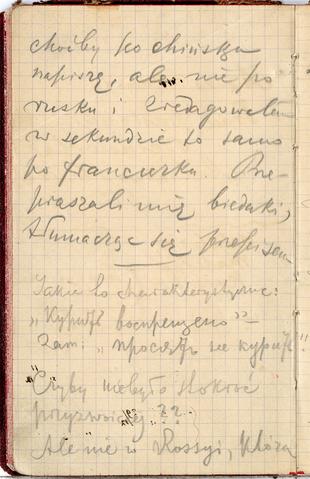 choćby po chińsku
napiszę, ale nie po
rusku i zredagowałem
w sekundzie to samo
po francusku. Prze-
praszali mię biedaki,
tłumacząc się przepisem
Jakie to charakterystyczne:
„Курить воспрещено” –
Zam. „просятъ не курить”!
Czyby nie było stokroć
przyzwoiciej??
Ale nie w Rossyi, która